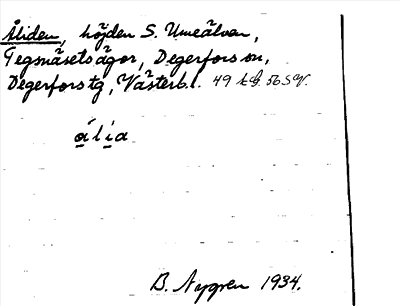 Åliden, höjden S. Umeälven,
Tegsnäsets ägor, Degerfors sn,
Degerfors tg, Västerb.l. 49
ạ́lị̀a
B. Nygren 1934.